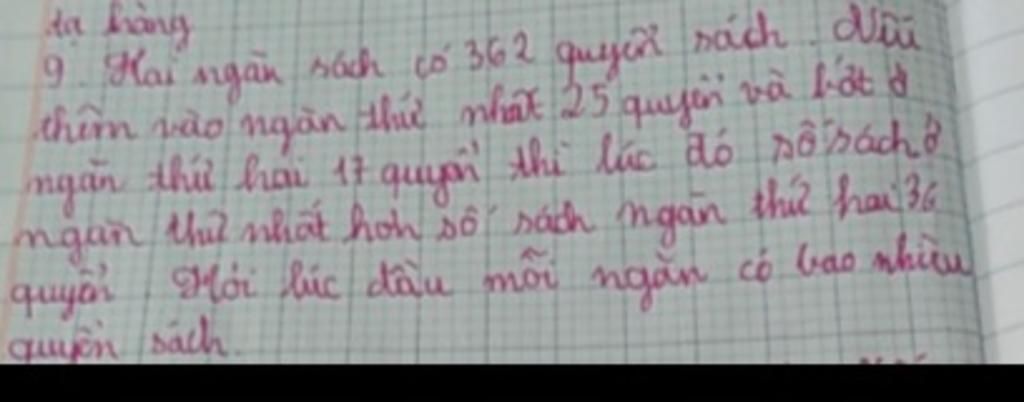 tạ hàng
9. Hai ngăn sách có 362 quyển sách. Nếu
thêm vào ngăn thứ nhất 25 quyển và bớt ở
ngăn thứ hai 17 quyển thì lúc đó số sách ở
ngăn thứ nhất hơn số sách ngăn thứ hai 36
quyển. Hỏi lúc đầu mỗi ngăn có bao nhiêu
quyển sách.